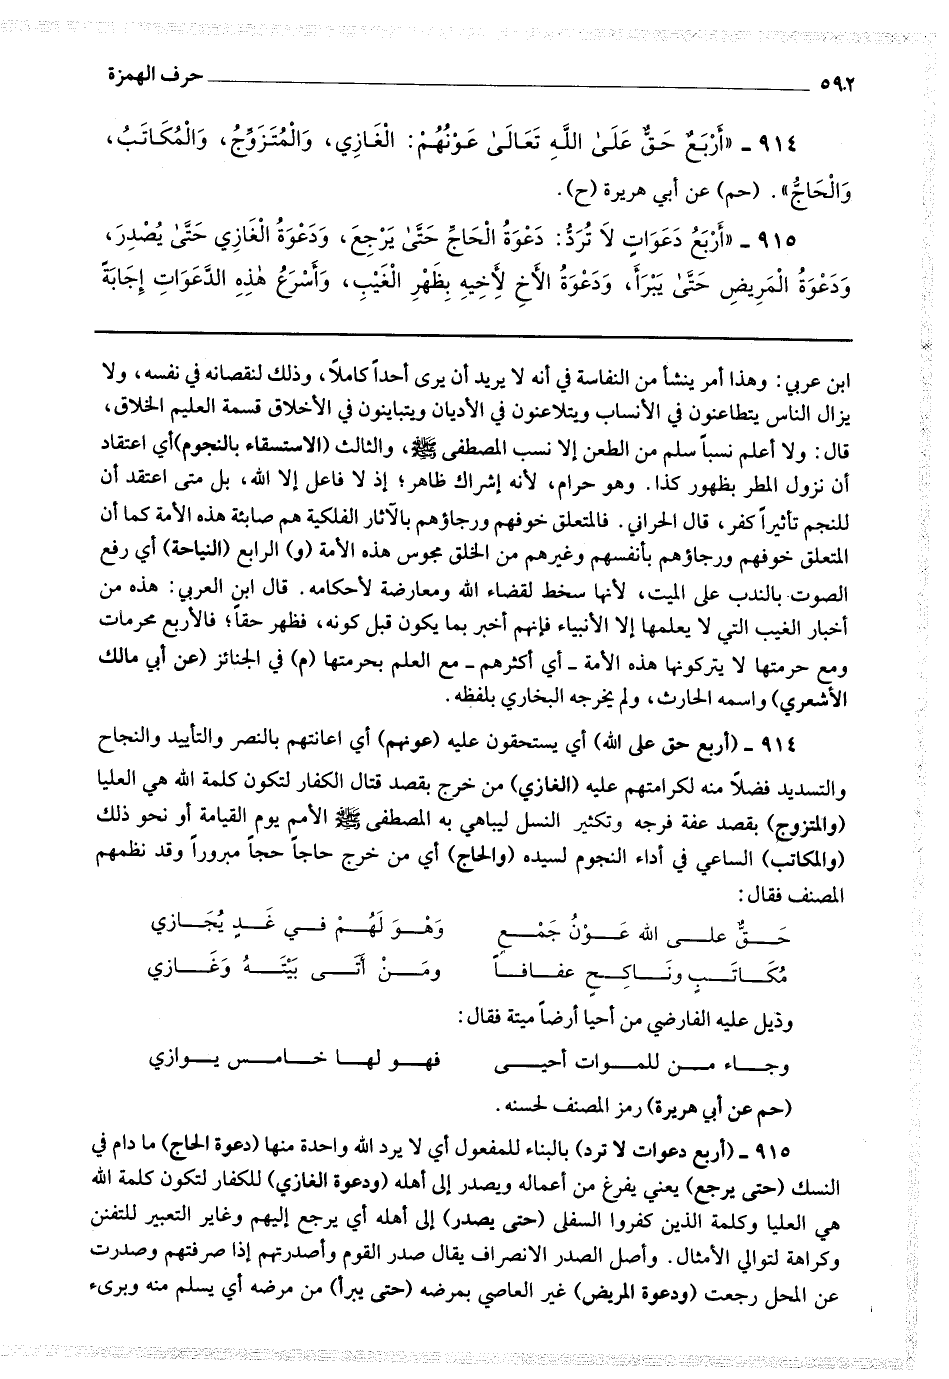 ٥٩٢ حرف الهمزة
٩١٤ ـ «أَرْبَعٌ حَقٌّ عَلَىٰ اللَّهِ تَعَالَىٰ عَوْنُهُمْ: الْغَازِي، وَالْمُتَزَوِّجُ، وَالْمُكَاتَبُ،
وَالْحَاجُّ». (حم) عن أبي هريرة (ح).
٩١٥ ـ «أَرْبَعُ دَعَوَاتٍ لَا تُرَدُّ: دَعْوَةُ الْحَاجِّ حَتَّىٰ يَرْجِعَ، وَدَعْوَةُ الْغَازِي حَتَّىٰ يُصْدِرَ،
وَدَعْوَةُ الْمَرِيضِ حَتَّىٰ يَبْرَأَ، وَدَعْوَةُ الأَخِ لِأَخِيهِ بِظَهْرِ الْغَيْبِ، وَأَسْرَعُ هٰذِهِ الدَّعَوَاتِ إِجَابَةً
ابن عربي: وهذا أمر ينشأ من النفاسة في أنه لا يريد أن يرى أحداً كاملاً، وذلك لنقصانه في نفسه، ولا
يزال الناس يتطاعنون في الأنساب ويتلاعنون في الأديان ويتباينون في الأخلاق قسمة العليم الخلاق،
قال: ولا أعلم نسباً سلم من الطعن إلا نسب المصطفى ﷺ، والثالث (الاستسقاء بالنجوم)أي اعتقاد
أن نزول المطر بظهور كذا. وهو حرام، لأنه إشراك ظاهر؛ إذ لا فاعل إلا الله، بل متى اعتقد أن
للنجم تأثيراً كفر، قال الحراني. فالمتعلق خوفهم ورجاؤهم بالآثار الفلكية هم صابئة هذه الأمة كما أن
المتعلق خوفهم ورجاؤهم بأنفسهم وغيرهم من الخلق مجوس هذه الأمة (و) الرابع (النياحة) أي رفع
الصوت بالندب على الميت، لأنها سخط لقضاء الله ومعارضة لأحكامه. قال ابن العربي: هذه من
أخبار الغيب التي لا يعلمها إلا الأنبياء فإنهم أخبر بما يكون قبل كونه، فظهر حقاً؛ فالأربع محرمات
ومع حرمتها لا يتركونها هذه الأمة ـ أي أكثرهم ـ مع العلم بحرمتها (م) في الجنائز (عن أبي مالك
الأشعري) واسمه الحارث، ولم يخرجه البخاري بلفظه.
٩١٤ ـ (أربع حق على الله) أي يستحقون عليه (عونهم) أي اعانتهم بالنصر والتأييد والنجاح
والتسديد فضلاً منه لكرامتهم عليه (الغازي) من خرج بقصد قتال الكفار لتكون كلمة الله هي العليا
(والمتزوج) بقصد عفة فرجه وتكثير النسل ليباهي به المصطفى ﷺ الأمم يوم القيامة أو نحو ذلك
(والمكاتب) الساعي في أداء النجوم لسيده (والحاج) أي من خرج حاجاً حجاً مبروراً وقد نظمهم
المصنف فقال:
حَـقٌّ علـى الله عَـوْنُ جَمْـعِ وَهْـوَ لَهُـمْ فـي غَـدٍ يُجَـازي
مُكَـاتَـبٍ ونَـاكِـحٍ عفـافـاً ومَـنْ أَتَـى بَيْتَـهُ وَغَـازي
وذيل عليه الفارضي من أحيا أرضاً ميتة فقال:
وجـاء مـن للمـوات أحيـى فهـو لهـا خـامـس يـوازي
(حم عن أبي هريرة) رمز المصنف لحسنه.
٩١٥ ـ (أربع دعوات لا ترد) بالبناء للمفعول أي لا يرد الله واحدة منها (دعوة الحاج) ما دام في
النسك (حتى يرجع) يعني يفرغ من أعماله ويصدر إلى أهله (ودعوة الغازي) للكفار لتكون كلمة الله
هي العليا وكلمة الذين كفروا السفلى (حتى يصدر) إلى أهله أي يرجع إليهم وغاير التعبير للتفنن
وكراهة لتوالي الأمثال. وأصل الصدر الانصراف يقال صدر القوم وأصدرتهم إذا صرفتهم وصدرت
عن المحل رجعت (ودعوة المريض) غير العاصي بمرضه (حتى يبرأ) من مرضه أي يسلم منه وبرىء